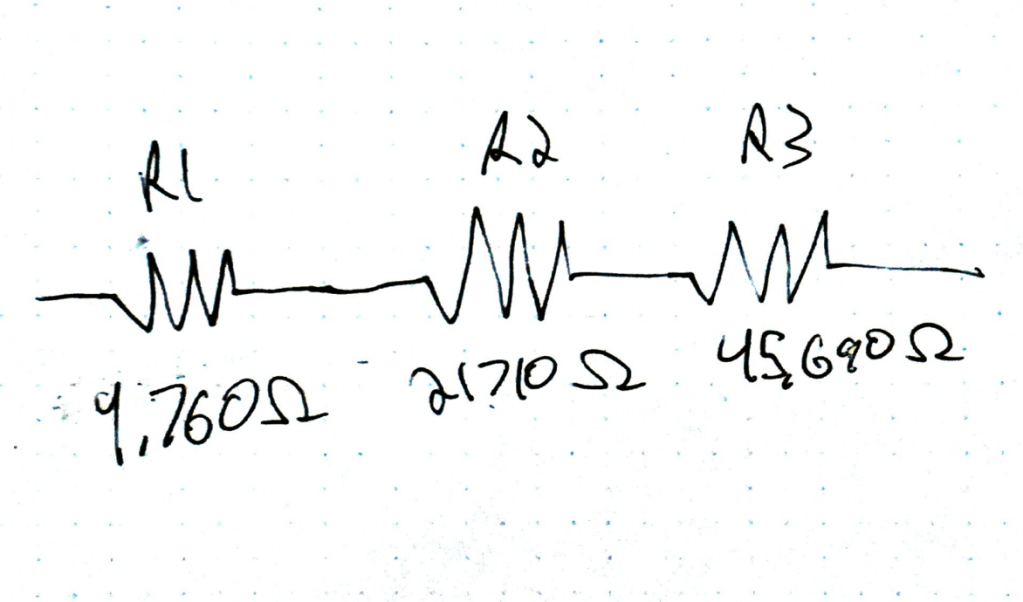 R1 R2 R3
9,760Ω 21710Ω 45,690Ω